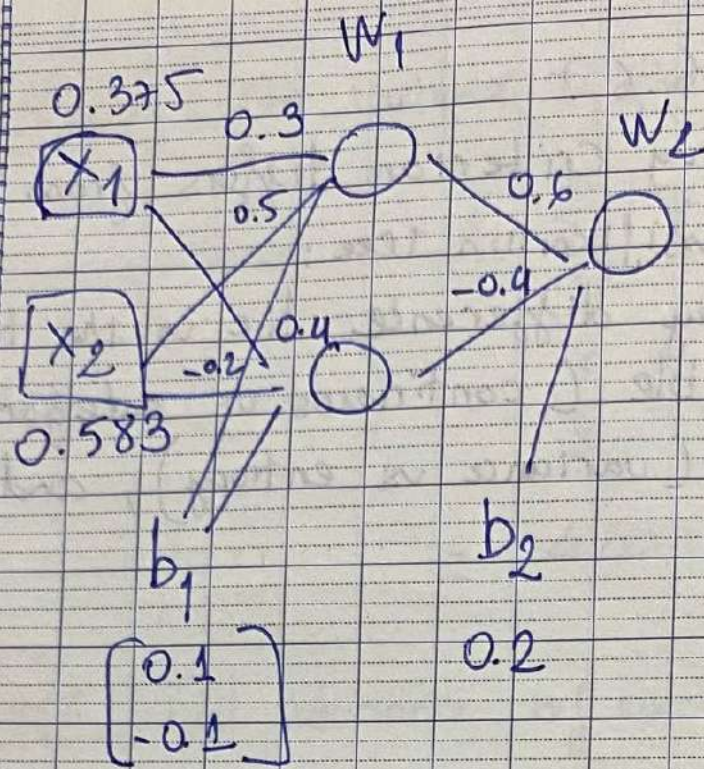 W1
0.375
0.3
W2
X1
0.5
0.6
-0.4
X2
0.4
-0.2
0.583
b1
b2
0.1
0.2
-0.1